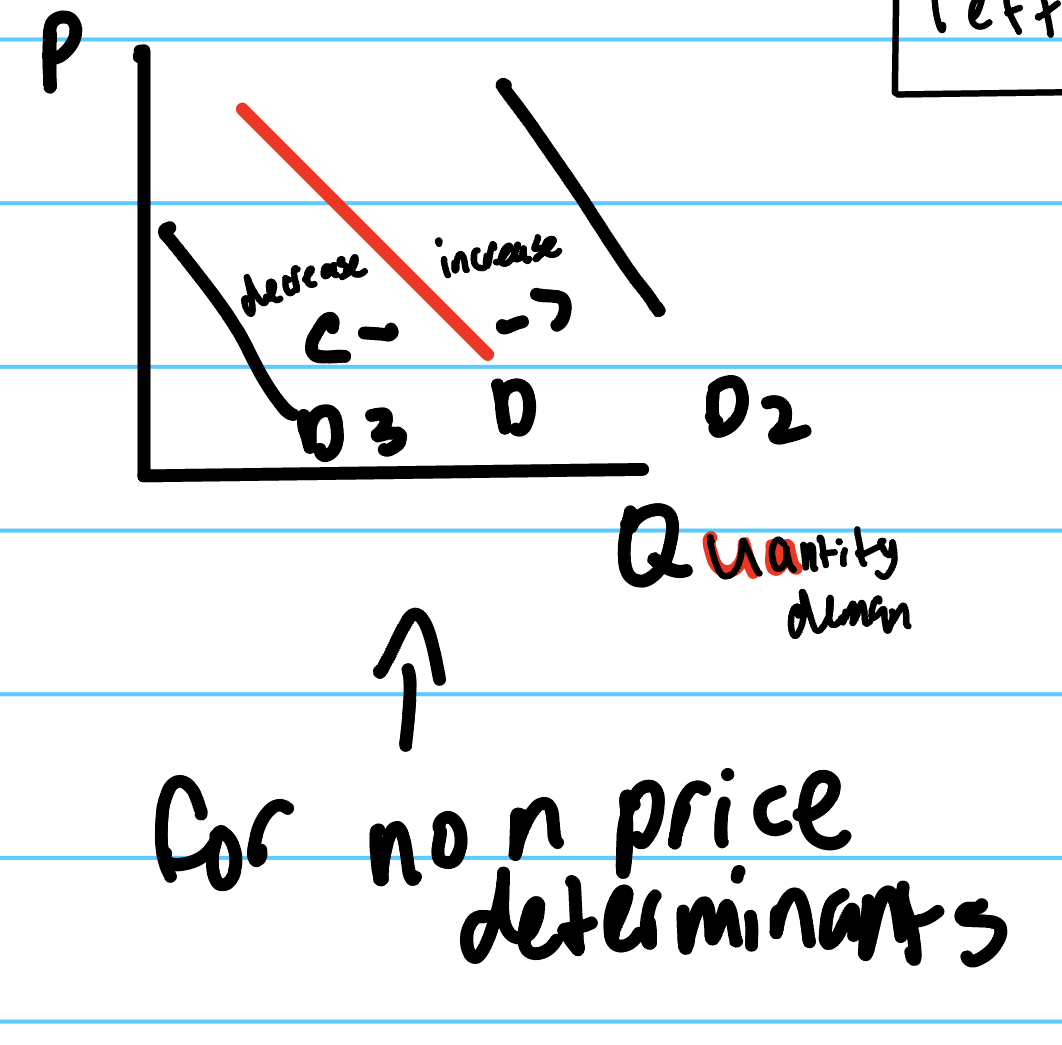 P
left
decrease
increase
D3
D
D2
Quantity
deman
for non price
determinants